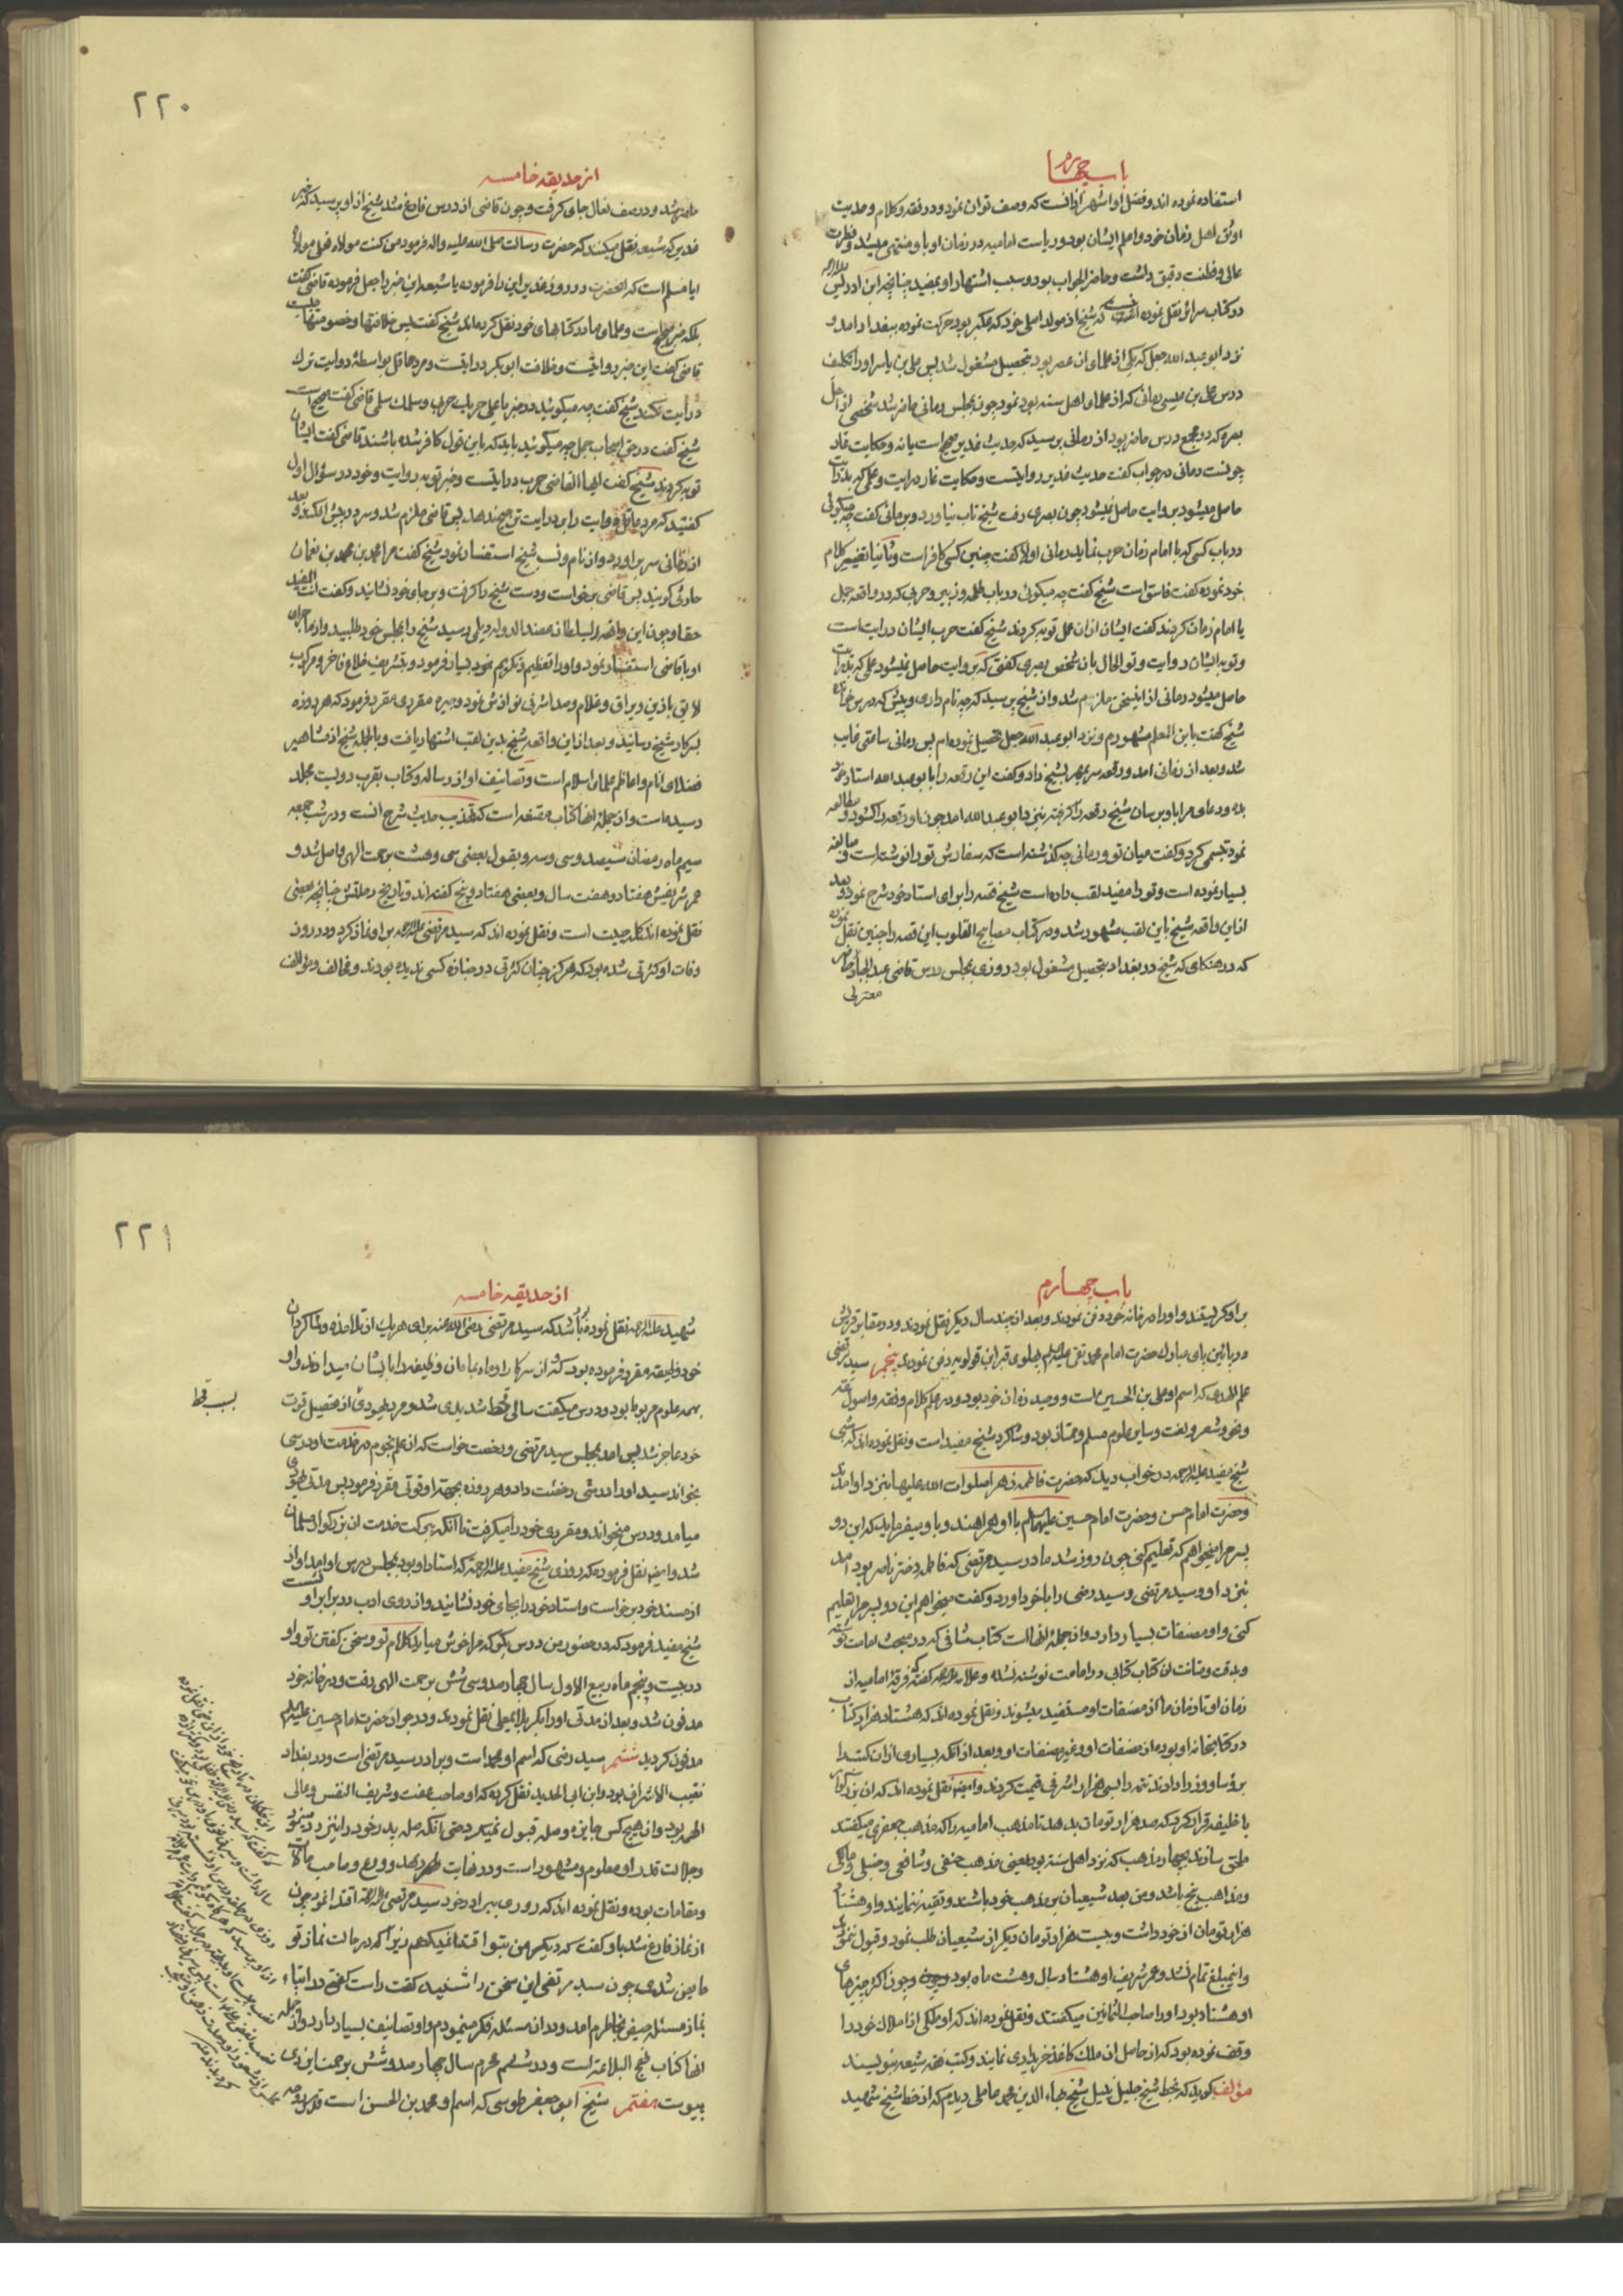 باب چهارم
استفاده نموده اند و فضل او اشهر از انست که وصف توان نمود و در فقه و کلام و حدیث
اوثق اهل زمان خود و اعلم ایشان بود و ریاست امامیه در زمان او باو منتهی میشد و فطرت
عالی و فطنت دقیق داشت و حاضر الجواب بود و سبب اشتهار او بمفید چنانچه ابن ادریس علیه الرحمه
در کتاب سرائر نقل نموده انست که شیخ از مولد اصلی خود که عکبر بود حرکت نموده ببغداد امد و
نزد ابو عبد الله جعل که یکی از علمای ان عصر بود بتحصیل مشغول شد پس علی بن یاسر او را تکلیف
درس علی بن عیسی رمانی که از علمای اهل سنه بود نمود چون بمجلس رمانی حاضر شد شخصی از اهل
بصره که در مجمع درس حاضر بود از رمانی پرسید که حدیث غدیر صحیح است یا نه و حکایت غار
چونست رمانی در جواب گفت حدیث غدیر روایتست و حکایت غار درایت و علمی که بدرایت
حاصل میشود بروایت حاصل نمیشود چون بصری رفت شیخ تاب نیاورد و برمانی گفت چه میگوئی
در باب کسی که با امام زمان حرب نماید رمانی اولا گفت چنین کسی کافر است و ثانیا تغییر کلام
خود نموده گفت فاسق است شیخ گفت چه میگوئی در باب طلحه و زبیر و حربی که در واقعه جمل
با امام زمان کردند گفت ایشان از ان عمل توبه کردند شیخ گفت حرب ایشان درایت است
و توبه ایشان روایت و تو الحال بان شخص بصری گفتی که بروایت حاصل نمیشود علمی که بدرایت
حاصل میشود رمانی از این سخن ملزم شد و از شیخ پرسید که چه نام داری و پیش که درس خوانده
شیخ گفت بابن المعلم مشهورم و نزد ابو عبد الله جعل تحصیل نموده ام پس رمانی ساعتی غایب
شد و بعد از زمانی امد و رقعه سر بمهر بشیخ داد و گفت این رقعه را بابو عبد الله استاد خود
بده و دعای مرا باو برسان شیخ رقعه را گرفته بنزد ابو عبد الله امد چون او رقعه را گشود و مطالعه
نمود تبسمی کرد و گفت میان تو و رمانی چه گذشته است که سفارش تو را نوشته است و مبالغه
بسیار نموده است و تو را مفید لقب داده است شیخ قصه را برای استاد خود شرح نمود و بعد
از این واقعه شیخ باین لقب مشهور شد و در کتاب مصابیح القلوب این قصه را چنین نقل نموده
که در هنگامی که شیخ در بغداد بتحصیل مشغول بود روزی بمجلس درس قاضی عبد الجبار
معتزلی
۲۲۰
از حدیقه خامسه
حاضر شد و در صف نعال جای گرفت و چون قاضی از درس فارغ شد شیخ از او پرسید که خبر
غدیر که شیعه نقل میکنند که حضرت رسالت صلی الله علیه و اله فرمود من کنت مولاه فعلی مولاه
ایا مسلم است که انحضرت در روز غدیر این را فرموده یا شیعه این خبر را جعل فرموده قاضی گفت
بلکه خبر صحیح است و علمای ما در کتابهای خود نقل کرده اند شیخ گفت پس خلافتها و خصومتها چیست
قاضی گفت این خبر روایتست و خلافت ابو بکر درایتست و مرد عاقل بواسطه روایت ترک
درایت نکند شیخ گفت چه میگوئید در خبر یا علی حربک حربی و سلمک سلمی قاضی گفت صحیح است
شیخ گفت در حق اصحاب جمل چه میگوئید باید که باین قول کافر شده باشند قاضی گفت ایشان
توبه کردند شیخ گفت ایها القاضی حرب درایتست و خبر توبه روایت و خود در سؤال اول
گفتید که مرد عاقل روایت را بر درایت ترجیح ندهد پس قاضی ملزم شد و سر در پیش افکند و بعد
از زمانی سر براورد و از نام و نسب شیخ استفسار نمود شیخ گفت مرا محمد بن محمد بن نعمان
حارثی گویند پس قاضی برخواست و دست شیخ را گرفت و بر جای خود نشانید و گفت انت المفید
حقا و چون این واقعه بسلطان عضد الدوله دیلمی رسید شیخ را بمجلس خود طلبید و از ماجرای
او با قاضی استفسار نمود و او را تعظیم و تکریم بسیار فرمود و بتشریف خلاع فاخر و مرکوب
لایق با زین و یراق و غلام و صد اشرفی نوازش نمود و جیره مقرری مقرر فرمود که هر روزه
بسرکار شیخ رسانند و بعد از این واقعه شیخ بدین لقب اشتهار یافت و بالجمله شیخ از مشاهیر
فضلای انام و اعاظم علمای اسلام است و تصانیف او از رساله و کتاب بقرب دویست مجلد
رسیده است و از جمله انها کتاب مقنعه است که تهذیب حدیث شرح انست و در شب جمعه
سیم ماه رمضان سیصد و سی و سه و بقول بعضی سی و هشت برحمت الهی واصل شد و
عمر شریفش هفتاد و هفت سال و بعضی هفتاد و پنج گفته اند و تاریخ رحلتش چنانچه بعضی
نقل نموده اند و نقل نموده اند که سید مرتضی علیه الرحمه بر او نماز کرد و در روز
وفات او کثرتی شده بود که هرگز چنان کثرتی در جنازه کسی ندیده بودند و مخالف و مؤالف
باب چهارم
بر او گریستند و او را در خانه خود دفن نمودند و بعد از چند سال دیگر نقل نمودند و در مقابر قریش
در پائین پای مبارک حضرت امام محمد تقی علیه السلام پهلوی قبر ابن قولویه دفن نمودند پنجم سید مرتضی
علم الهدی که اسم او علی بن الحسین است و وحید زمان خود بود و در علم کلام و فقه و اصول فقه
و نحو و شعر و لغت و سایر علوم مسلم و ممتاز بود و شاگرد شیخ مفید است و نقل نموده اند که شبی
شیخ مفید علیه الرحمه در خواب دید که حضرت فاطمه زهرا صلوات الله علیها بنزد او امدند
و حضرت امام حسن و حضرت امام حسین علیهما السلام با او همراهند و باو میفرماید که این دو
پسر مرا میخواهم که تعلیم کنی چون روز شد مادر سید مرتضی که فاطمه دختر ناصر بود امد
بنزد او و سید مرتضی و سید رضی را با خود اورد و گفت میخواهم این دو پسر مرا تعلیم
کنی و او مصنفات بسیار دارد و از جمله انها است کتاب شافی که در مبحث امامت نوشته
و بدقت و متانت ان کتاب کتابی در امامت نوشته نشده و علامه علیه الرحمه گفته که فرقه امامیه از
زمان او تا زمان ما از مصنفات او مستفید میشوند و نقل نموده اند که هشتاد هزار کتاب
در کتابخانه او بوده از مصنفات او و غیر مصنفات او و بعد از انکه بسیاری از ان کتب را
برؤسا و وزرا دادند تتمه را بسی هزار اشرفی قیمت کردند و ایضا نقل نموده اند که ان بزرگوار
با خلیفه قرار کرد که صد هزار تومان بدهد تا مذهب امامیه را که مذهب جعفری میگفتند
ملحق سازند بچهار مذهب که نزد اهل سنه بود یعنی مذهب حنفی و شافعی و حنبلی و مالکی
و مذاهب پنج باشد و من بعد شیعیان بر مذهب خود باشند و تقیه ننمایند و او هشتاد
هزار تومان از خود داشت و بیست هزار تومان دیگر از شیعیان طلب نمود و قبول ننمودند
و اینمبلغ تمام نشد و عمر شریف او هشتاد سال و هشت ماه بود و چون اکثر چیزهای
او هشتاد بود او را صاحب الثمانین میگفتند و نقل نموده اند که او ملکی از املاک خود را
وقف نموده بود که از حاصل ان ملک کاغذ خریداری نمایند و کتب فقه شیعه بنویسند
مؤلف گوید که بخط شیخ جلیل نبیل شیخ بهاء الدین محمد عاملی دیدم که از خط شیخ شهید
۲۲۱
از حدیقه خامسه
شهید علیه الرحمه نقل نموده بود که سید مرتضی رضی الله عنه برای هر یک از تلامذه و شاگردان
خود وظیفه مقرر فرموده بود که از سرکار او ماه بماه ان وظیفه را بایشان میدادند و او
بهمه علوم مربوط بود و درس میگفت سالی قحط شدیدی شد و مرد یهودی از تحصیل قوت
بسبب قحط
خود عاجز شد پس امد بمجلس سید مرتضی و رخصت خواست که از علم نجوم در خدمت او درسی
بخواند سید او را رخصت داد و هر روزه بجهة او قوتی مقرر فرمود پس مدتی یهودی
میامد و درس میخواند و مقرری خود را میگرفت تا انکه ببرکت خدمت ان بزرگوار مسلمان
شد و ایضا نقل فرموده که روزی شیخ مفید علیه الرحمه که استاد او بود بمجلس درس او امد او از
از مسند خود برخواست و استاد خود را بجای خود نشانید و از روی ادب در برابر او نشست
شیخ مفید فرمود که در حضور من درس بگو که مرا خوش میاید کلام تو و سخن گفتن تو و او
در بیست و پنجم ماه ربیع الاول سال چهار صد و سی و شش برحمت الهی رفت و در خانه خود
مدفون شد و بعد از مدتی او را بکربلای معلی نقل نمودند و در جوار حضرت امام حسین علیه السلام
مدفون گردید ششم سید رضی که اسم او محمد است و برادر سید مرتضی است و در بغداد
نقیب الاشراف بود و ابن ابی الحدید نقل کرده که او صاحب عفت و شریف النفس و عالی
الهمه بود و از هیچ کس جایزه و صله قبول نمیکرد حتی انکه صله پدر خود را نیز رد مینمود
و جلالت قدر او معلوم و مشهور است و در غایت زهد و ورع و صاحب حالات
و مقامات بوده و نقل نموده اند که روزی ببرادر خود سید مرتضی علیه الرحمه اقتدا نمود چون
از نماز فارغ شد باو گفت که دیگر من بتو اقتدا نمیکنم زیرا که در حالت نماز تو
حایض شدی چون سید مرتضی این سخن را شنید گفت راست گفتی در اثناء
نماز مسئله حیض بخاطرم امد و در ان مسئله فکر مینمودم و او تصانیف بسیار دارد و از جمله
انها کتاب نهج البلاغه است و در ششم محرم سال چهار صد و شش برحمت ایزدی
پیوست هفتم شیخ ابو جعفر طوسی که اسم او محمد بن الحسن است قدس روحه